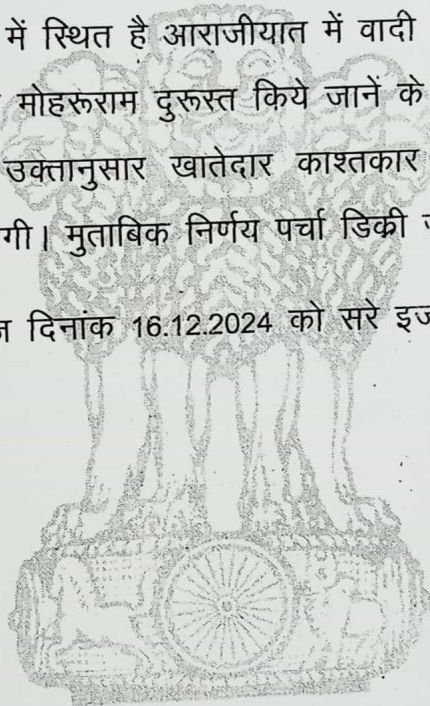 में स्थित है आराजीयात में वादी
मोहरूराम दुरूस्त किये जानें के
उक्तानुसार खातेदार काश्तकार
गी। मुताबिक निर्णय पर्चा डिक्री
दिनांक 16.12.2024 को सरे